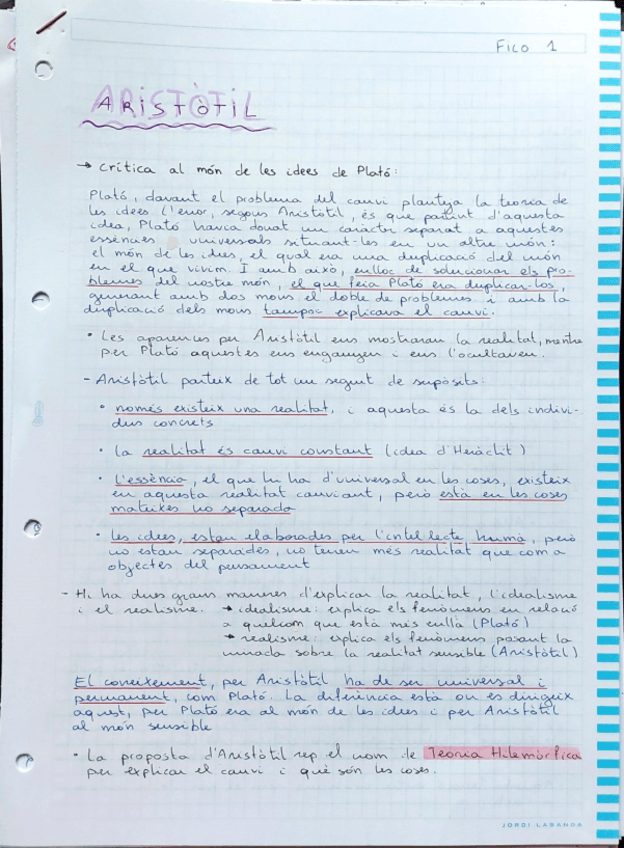 FICO 1
ARISTÒTIL
→ Crítica al món de les idees de Plató:
Plató, davant el problema del canvi planteja la teoria de
les idees. L'error, segons Aristòtil, és que partint d'aquesta
idea, Plató havia donat un caràcter separat a aquestes
essències universals situant-les en un altre món:
el món de les idees, el qual era una duplicació del món
en el que vivim. I amb això, enlloc de solucionar els pro-
blemes del nostre món, el que feia Plató era duplicar-los,
generant amb dos mons el doble de problemes i amb la
duplicació dels mons tampoc explicava el canvi.
• Les aparences per Aristòtil ens mostraran la realitat, mentre
per Plató aquestes ens enganyen i ens l'ocultaven.
- Aristòtil parteix de tot un seguit de supòsits:
• només existeix una realitat, i aquesta és la dels indivi-
dus concrets
• La realitat és canvi constant (idea d'Heràclit)
• L'essència, el que hi ha d'universal en les coses, existeix
en aquesta realitat canviant, però està en les coses
mateixes no separada
• Les idees, estan elaborades per l'intel·lecte humà, però
no estan separades, no tenen més realitat que com a
objectes del pensament
- Hi ha dues grans maneres d'explicar la realitat, l'idealisme
i el realisme. → idealisme: explica els fenòmens en relació
a quelcom que està més enllà (Plató)
→ realisme: explica els fenòmens posant la
mirada sobre la realitat sensible (Aristòtil)
El coneixement, per Aristòtil ha de ser universal i
permanent, com Plató. La diferència està on es dirigeix
aquest, per Plató era al món de les idees i per Aristòtil
al món sensible
• La proposta d'Aristòtil rep el nom de Teoria Hilemòrfica
per explicar el canvi i què són les coses.
JORDI LABANDA